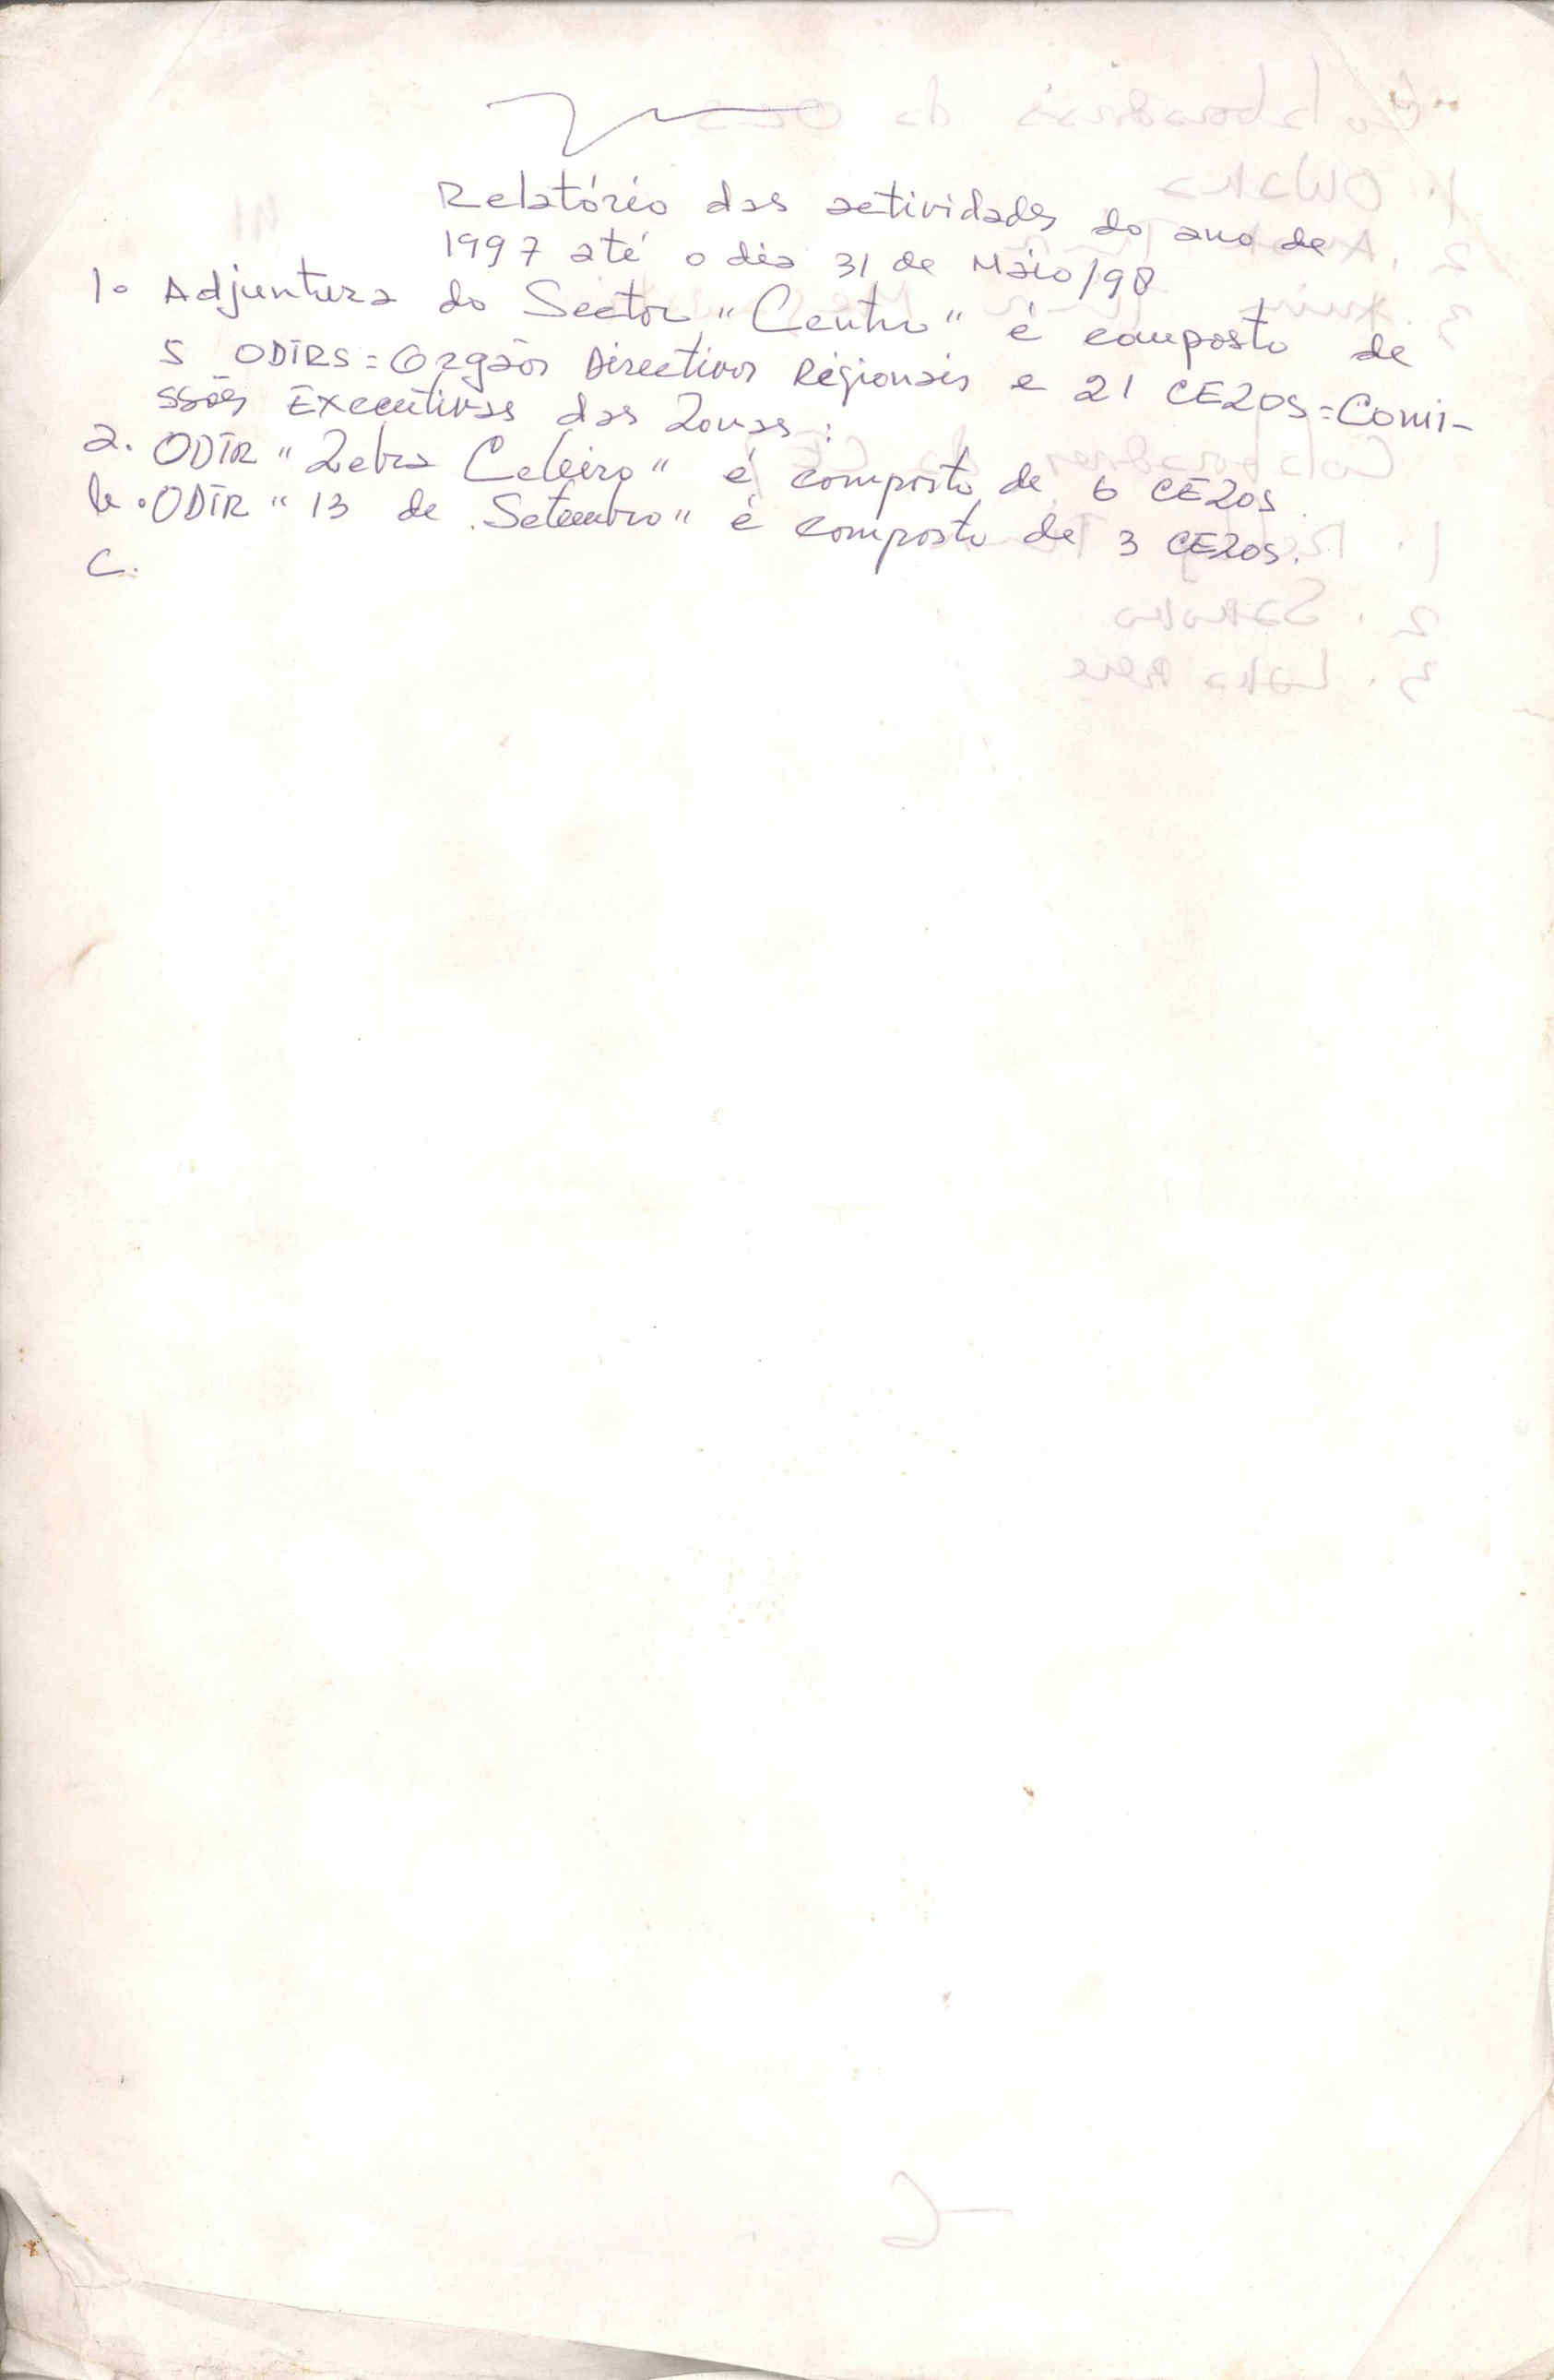 Relatório das actividades do ano de
1997 até o dia 31 de Maio/98
1. Adjuntura do Sector "Centro" é composto de
5 ODIRS = Orgãos Directivos Regionais e 21 CEZOS = Comi-
ssões Executivas das Zonas:
a. ODIR "Zebra Celeiro" é composto de 6 CEZOS.
b. ODIR "13 de Setembro" é composto de 3 CEZOS.
c.